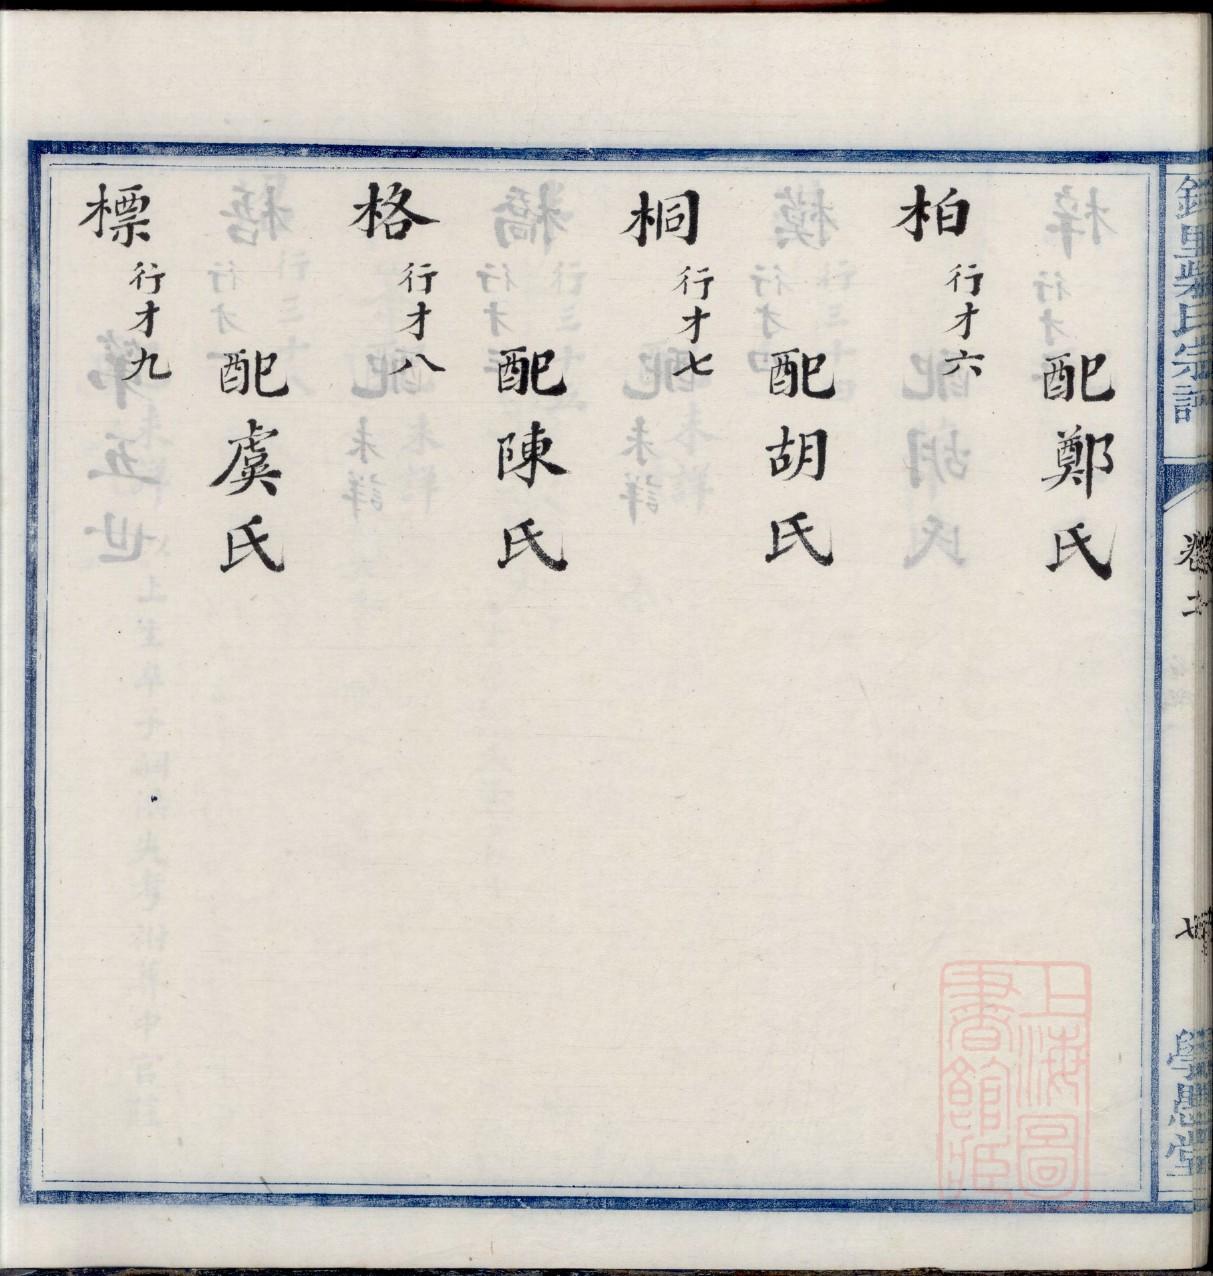 配鄭氏
柏 行才六
配胡氏
桐 行才七
配陳氏
格 行才八
配虞氏
標 行才九
氏宗譜
卷
七
學思堂
上海圖
書館藏